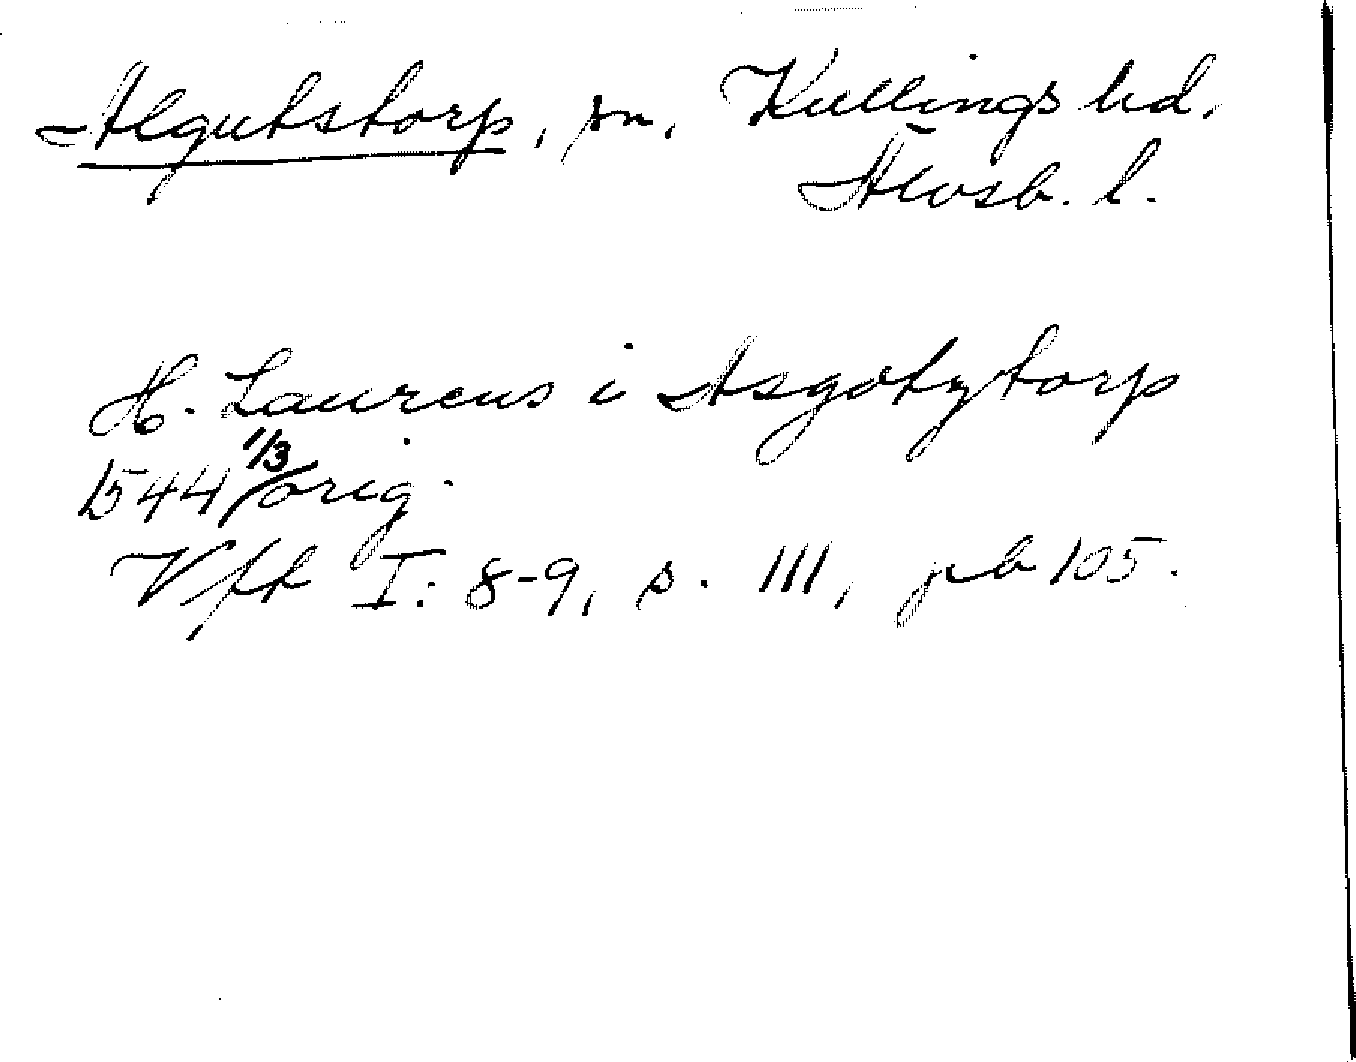 Algutstorp, sn, Kullings hd.
Älvsb. l.
H. Laurens i Asgotztorp
1544 1/3 orig.
Vft I: 8-9, s. 111, nb 105.